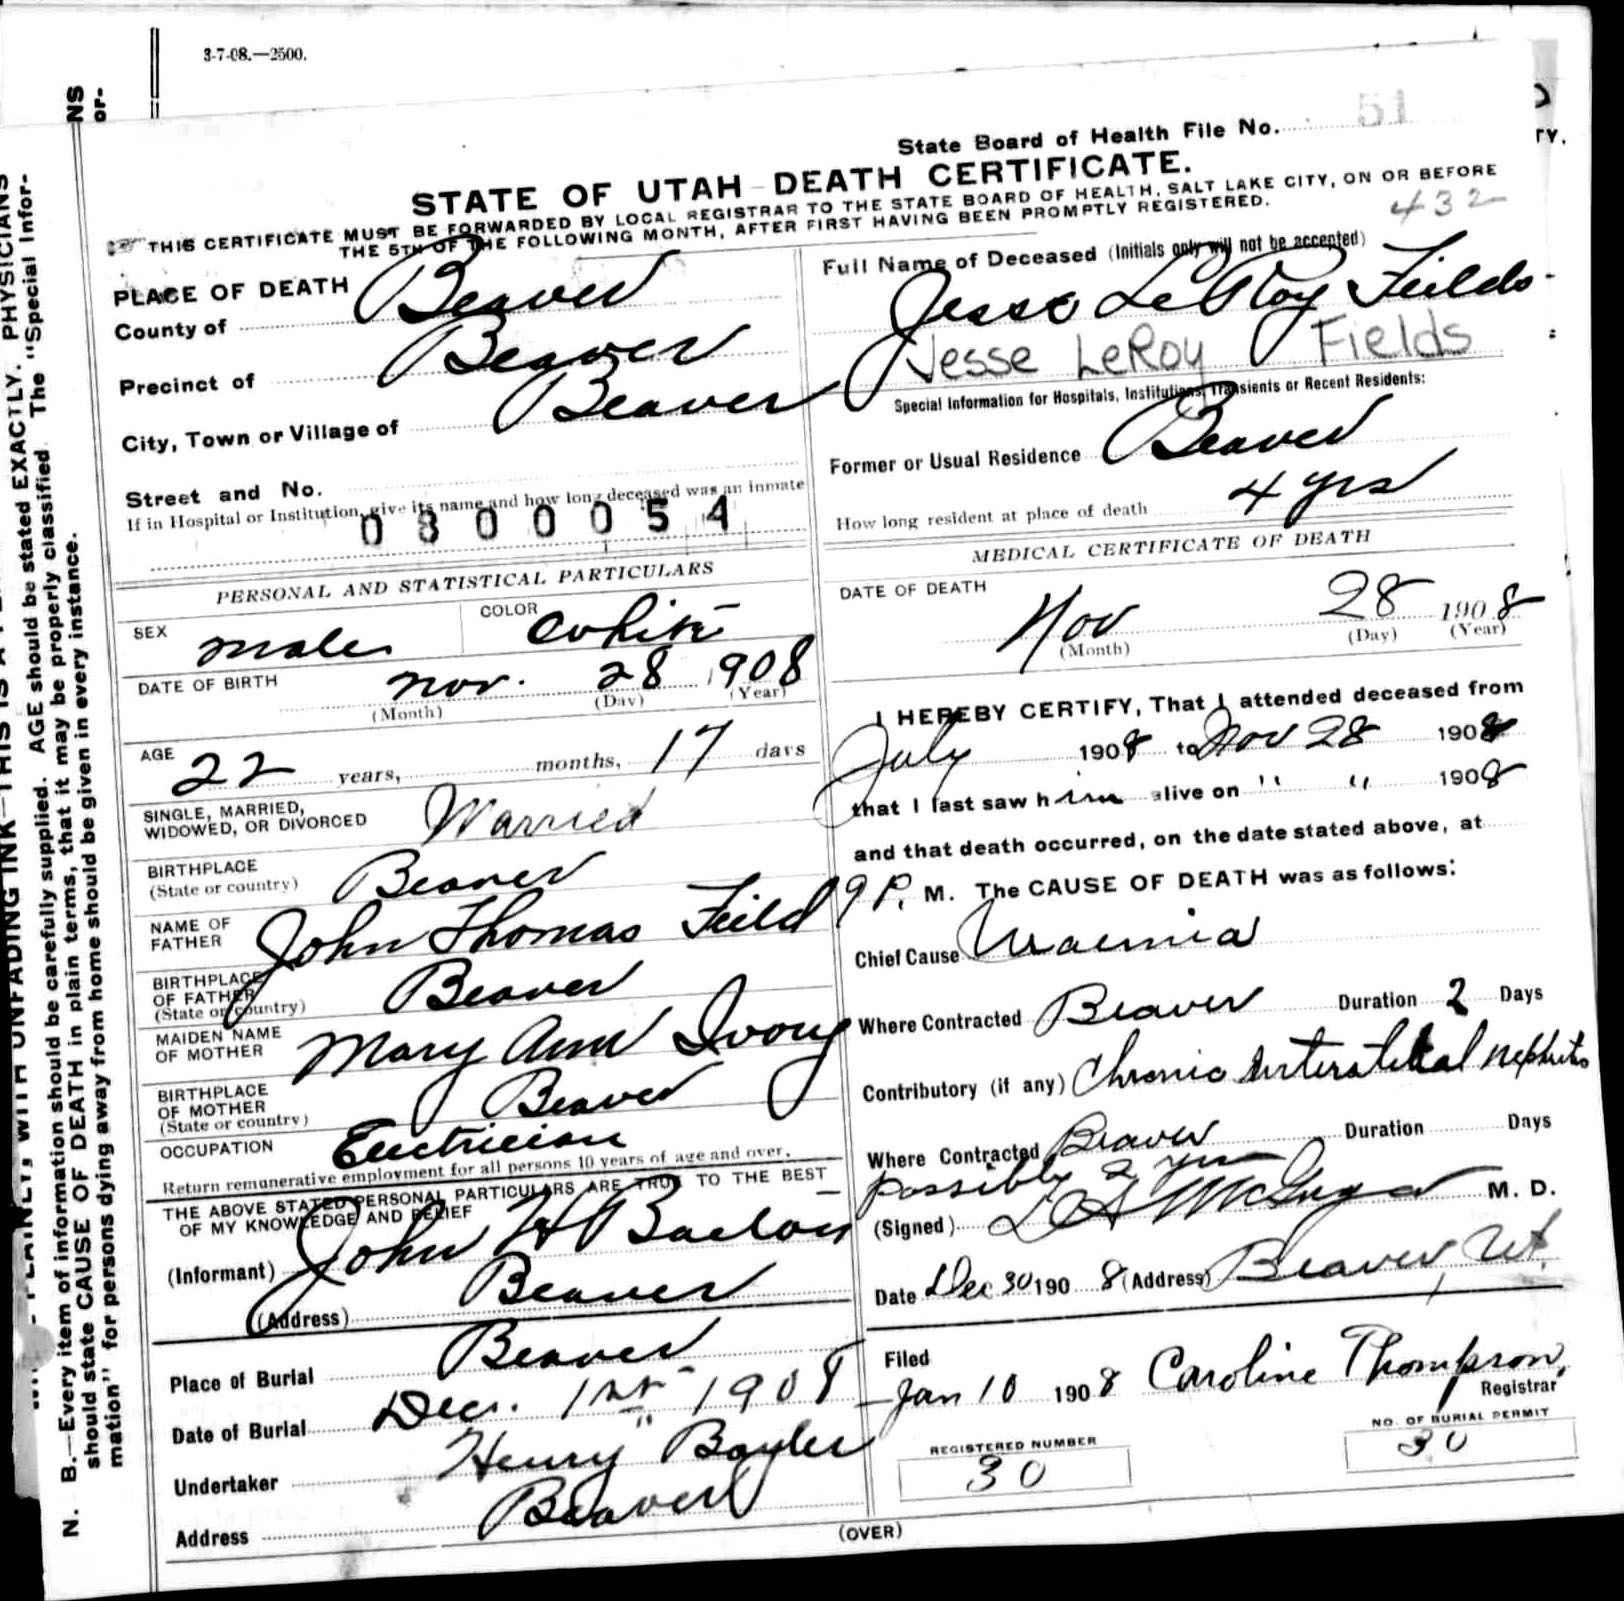 3-7-08.—2500.
State Board of Health File No. 51
STATE OF UTAH - DEATH CERTIFICATE.
THIS CERTIFICATE MUST BE FORWARDED BY LOCAL REGISTRAR TO THE STATE BOARD OF HEALTH, SALT LAKE CITY, ON OR BEFORE
THE 5TH OF THE FOLLOWING MONTH, AFTER FIRST HAVING BEEN PROMPTLY REGISTERED.
432
PLACE OF DEATH
County of Beaver
Precinct of Beaver
City, Town or Village of Beaver
Street and No.
If in Hospital or Institution, give its name and how long deceased was an inmate
0800054
PERSONAL AND STATISTICAL PARTICULARS
SEX male
COLOR white
DATE OF BIRTH Nov. 28 1908
(Month) (Day) (Year)
AGE 22 years, months, 17 days
SINGLE, MARRIED,
WIDOWED, OR DIVORCED Married
BIRTHPLACE
(State or country) Beaver
NAME OF
FATHER John Thomas Field
BIRTHPLACE
OF FATHER
(State or country) Beaver
MAIDEN NAME
OF MOTHER Mary Ann Ivory
BIRTHPLACE
OF MOTHER
(State or country) Beaver
OCCUPATION Electrician
Return remunerative employment for all persons 10 years of age and over.
THE ABOVE STATED PERSONAL PARTICULARS ARE TRUE TO THE BEST
OF MY KNOWLEDGE AND BELIEF
(Informant) John H Barlow
(Address) Beaver
Place of Burial Beaver
Date of Burial Dec. 1st 1908
Undertaker Henry
Address Beaver
Full Name of Deceased (Initials only will not be accepted)
Jesse LeRoy Fields
Jesse LeRoy Fields
Special Information for Hospitals, Institutions, Transients or Recent Residents:
Former or Usual Residence Beaver
How long resident at place of death 4 yrs
MEDICAL CERTIFICATE OF DEATH
DATE OF DEATH
Nov 28 1908
(Month) (Day) (Year)
I HEREBY CERTIFY, That I attended deceased from
July 1908 to Nov 28 1908
that I last saw him alive on " " 1908
and that death occurred, on the date stated above, at
9 P. M. The CAUSE OF DEATH was as follows:
Chief Cause Uraemia
Where Contracted Beaver Duration 2 Days
Contributory (if any) Chronic Interstitial Nephritis
Where Contracted Beaver Duration Days
possibly 2 yrs
(Signed) M. D.
Date Dec 30 1908 (Address) Beaver, Ut.
Filed
Jan 10 1908 Caroline Thompson,
Registrar
REGISTERED NUMBER
30
NO. OF BURIAL PERMIT
30
(OVER)
N. B.—Every item of information should be carefully supplied. AGE should be stated EXACTLY. PHYSICIANS
should state CAUSE OF DEATH in plain terms, that it may be properly classified. The "Special Infor-
mation" for persons dying away from home should be given in every instance.